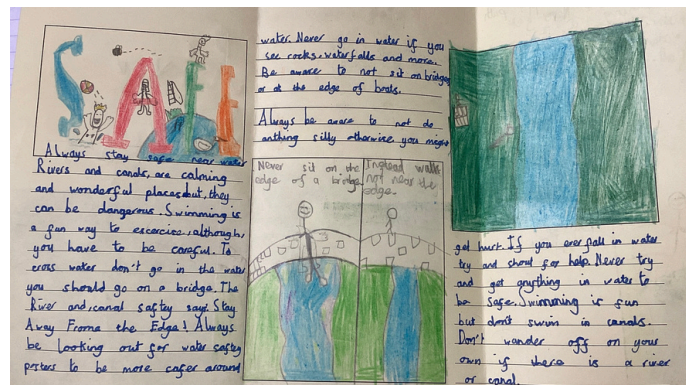 SAFE
Always stay safe near water
Rivers and canals, are calming
and wonderful places but, they
can be dangerous. Swimming is
a fun way to escarcise, although,
you have to be careful. To
cross water don't go in the water
you should go on a bridge. The
River and canal saftey says Stay
Away Frome the Edge! Always
be looking out for water saftey
posters to be more safer around
water. Never go in water if you
see rocks, waterfalls and more.
Be aware to not sit on bridges
or at the edge of boats.
Always be aware to not do
anthing silly otherwise you might
Never sit on the
edge of a bridge
Instead walk
not near the
edge.
get hurt. If you ever fall in water
try and shout for help. Never try
and get anything in water to
be Safe. Swimming is fun
but don't swim in canals.
Don't wander off on your
own if there is a river
or canal.